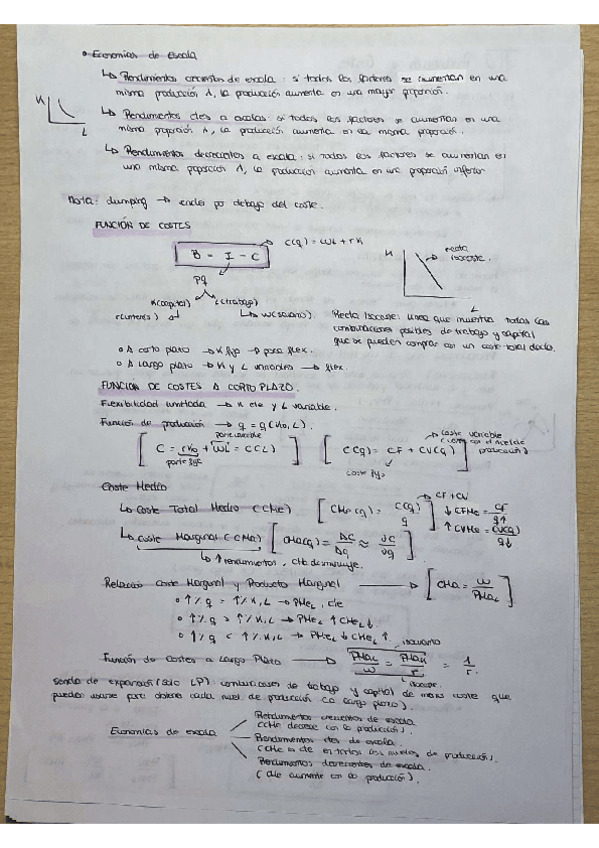 • Economias de Escala
↳ Rendimientos crecientes de escala : si todos los factores se aumentan en una
misma producción λ, la producción aumenta en una mayor proporción.
↳ Rendimientos ctes a escala: si todos los factores se aumentan en una
misma proporción λ, la producción aumenta en la misma proporción.
K
L
↳ Rendimientos decrecientes a escala : si todos los factores se aumentan en
una misma proporción λ, la producción aumenta en una proporción inferior
Nota: dumping → vender por debajo del coste.
FUNCIÓN DE COSTES
B = I - C
→ C(q) = wL + rK
Pq
K
recta
isocoste.
L
K(capital) L(trabajo)
r(interés) w(salario).
Recta Isocoste: linea que muestra todas las
combinaciones posibles de trabajo y capital
que se pueden comprar con un coste total dado.
o A corto plazo → K fijo → poca flex.
o A largo plazo → K y L variables → flex.
FUNCION DE COSTES A CORTO PLAZO.
Flexibilidad limitada → K cte y L variable.
Función de producción → q = q(K0, L).
[ C = rK0 + wL = C(L) ] [ C(q) = CF + CV(q) ]
parte variable
parte fija
coste variable
producción)
coste fijo
Coste Medio
↳ Coste Total Medio (CMe) [ CMe(q) = C(q)/q ] → CF + CV
↓ CFMe = CF/q↑
↑ CVMe = CV(q)/q↓
↳ Coste Marginal (CMa) [ CMa(q) = ΔC/Δq ≈ ∂C/∂q ]
↳ ↑ rendimientos, CMa disminuye.
Relación Coste Marginal y Producto Marginal → [ CMa = w/PMaL ]
o ↑% q = ↑% K, L → PMeL, cte
o ↑% q > ↑% K, L → PMeL ↑ CMeL ↓
o ↑% q < ↑% K, L → PMeL ↓ CMeL ↑
Función de Costes a Largo Plazo → PMaL/w = PMaK/r = 1/r.
isocuanta
isocoste.
Senda de expansión (sólo LP) combinaciones de trabajo y capital de menos coste que
pueden usarse para obtener cada nivel de producción (a largo plazo).
Economías de escala
Rendimientos crecientes de escala
(CMe decrece con la producción).
Rendimientos ctes de escala.
(CMe es cte en todos los niveles de producción).
Rendimientos decrecientes de escala.
(CMe aumenta con la producción).